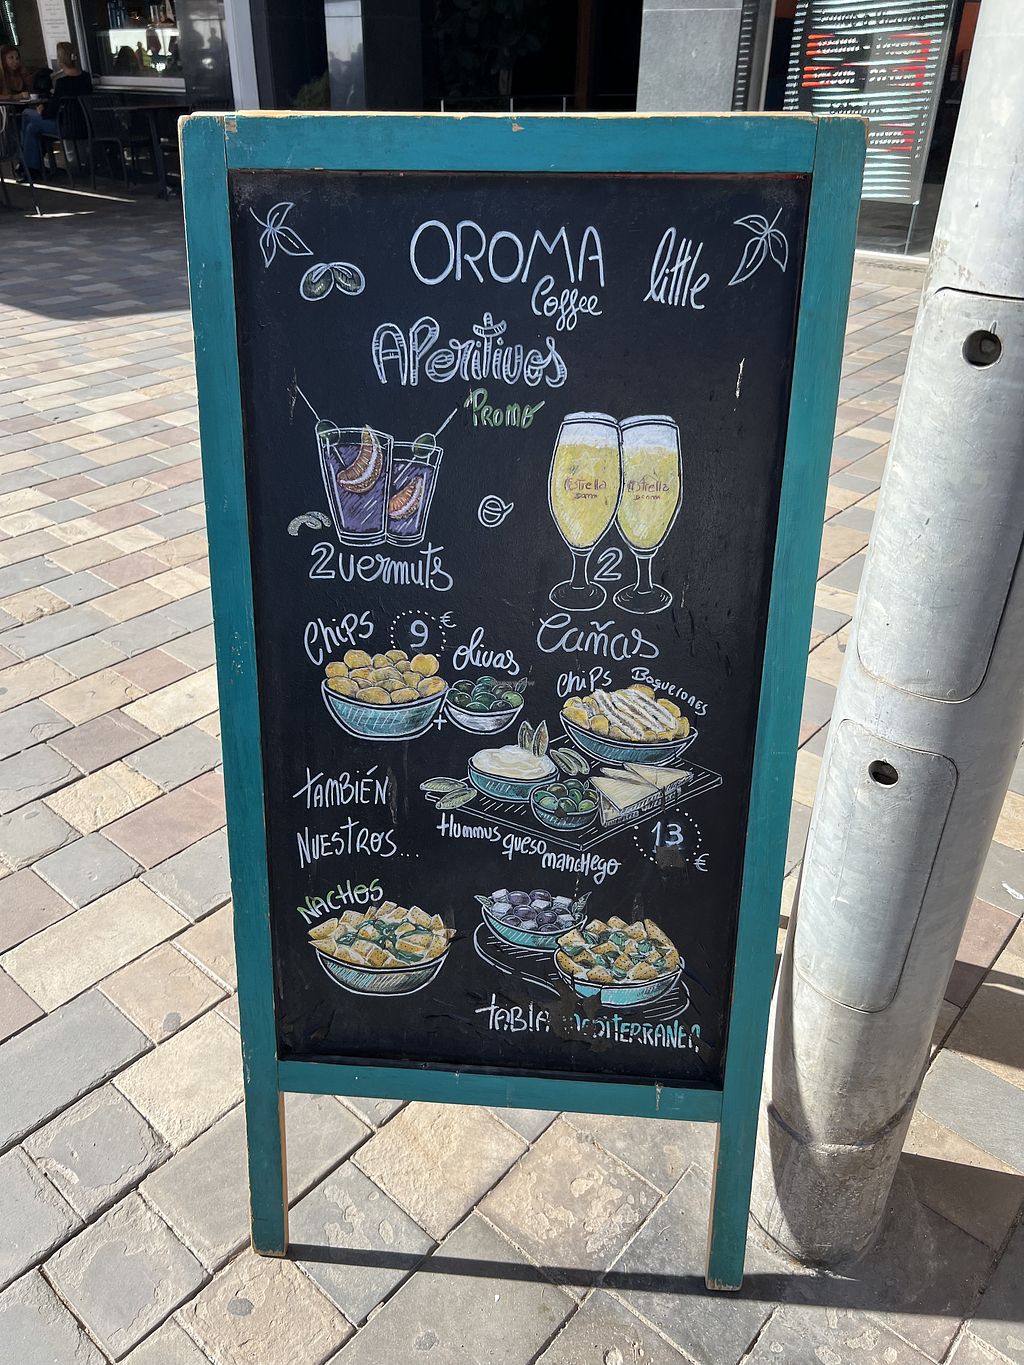 OROMA
Coffee
little
APeritivos
PROMO
2 vermuts
o
Estrella
Damm
Estrella
Damm
2
Cañas
Chips
9 €
olivas
+
chips
Boquerones
TAMBIÉN
NUESTROS...
Hummus queso manchego
13 €
NACHOS
TABLA MEDITERRANEA